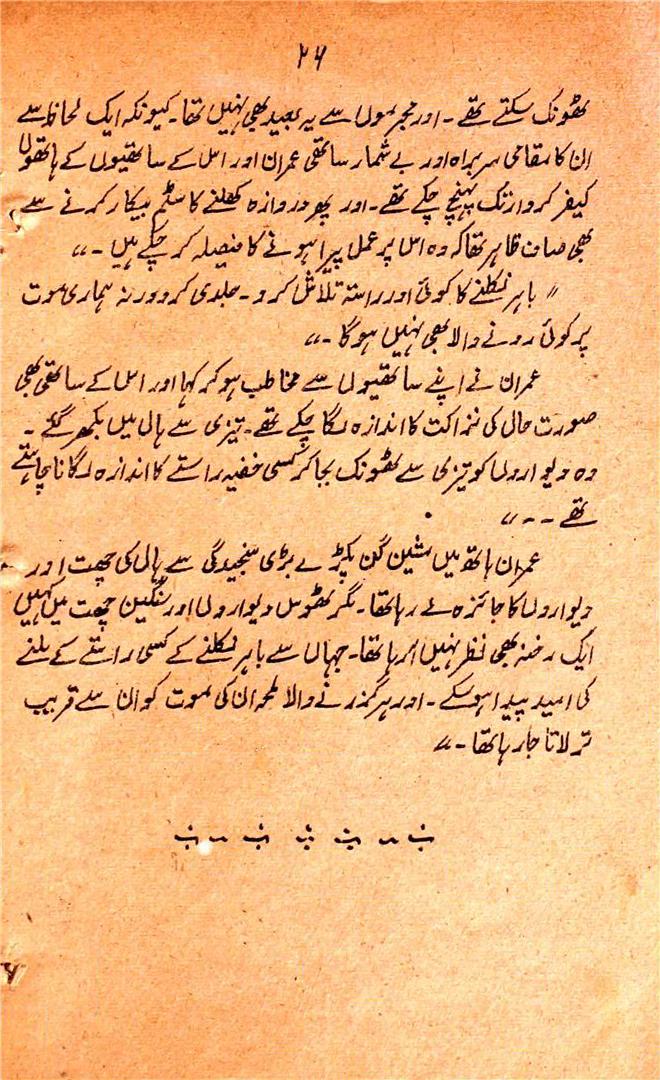 ۲۶
ٹھونک سکتے تھے۔ اور مجرموں سے یہ بعید بھی نہیں تھا۔ کیونکہ ایک لحاظ سے
ان کا مقامی سربراہ اور بے شمار ساتھی عمران اور اس کے ساتھیوں کے ہاتھوں
کیفر کردار تک پہنچ چکے تھے۔ اور پھر دروازہ کھلنے کا سسٹم بیکار کرنے سے
بھی صاف ظاہر تھا کہ وہ اس پر عمل پیرا ہونے کا فیصلہ کر چکے ہیں۔ ،،
" باہر نکلنے کا کوئی اور راستہ تلاش کرو۔ جلدی کرو ورنہ ہماری موت
پر کوئی رونے والا بھی نہیں ہوگا۔ ،،
عمران نے اپنے ساتھیوں سے مخاطب ہو کر کہا اور اس کے ساتھی بھی
صورت حال کی نزاکت کا اندازہ لگا چکے تھے۔ تیزی سے ہال میں بکھر گئے۔
وہ دیواروں کو تیزی سے ٹھونک بجا کر کسی خفیہ راستے کا اندازہ لگانا چاہتے
تھے۔۔۔ ،،
عمران ہاتھ میں مشین گن پکڑے بڑی سنجیدگی سے ہال کی چھت اور
دیواروں کا جائزہ لے رہا تھا۔ مگر ٹھوس دیواروں اور سنگین چھت میں کہیں
ایک رخنہ بھی نظر نہیں آ رہا تھا۔ جہاں سے باہر نکلنے کے کسی راستے کے ملنے
کی امید پیدا ہو سکے۔ اور ہر گزرنے والا لمحہ ان کی موت کو ان سے قریب
تر لاتا جا رہا تھا۔ ،،